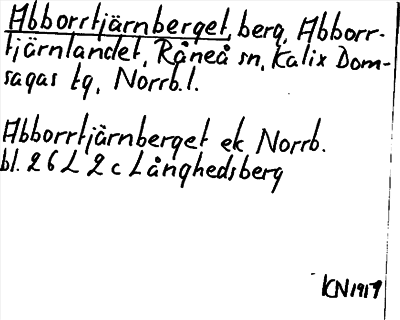 Abborrtjärnberget, berg, Abborr-
tjärnlandet, Råneå sn, Kalix Dom-
sagas tg, Norrb. l.
Abborrtjärnberget ek Norrb.
bl. 26 L 2 c Långhedsberg
KN 1919